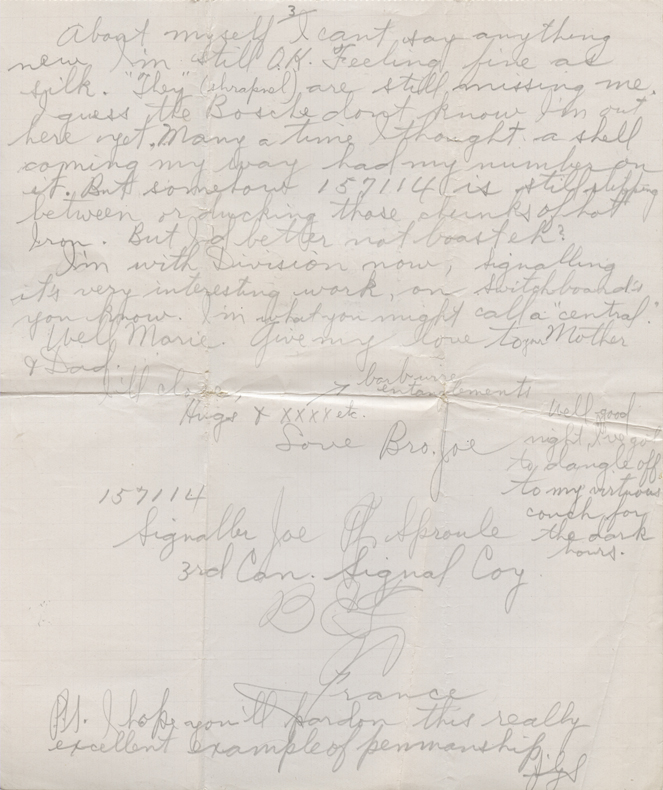 3
About myself I cant say anything
new I'm still O.K. Feeling fine as
silk. "They" (shrapnel) are still missing me.
I guess the Bosche dont know I'm out
here yet. Many a time I thought a shell
coming my way had my number on
it. But somehow 157114 is still slipping
between or ducking those chunks of hot
Iron. But I'd better not boast eh?
I'm with Division now, signalling
it's very interesting work, on switchboard's
you know. I'm what you might call a "central."
Well Marie. Give my love to your Mother
& Dad.
I'll close,
barbwire
entanglements
Hugs & XXXX etc.
Love Bro. Joe
Well good
night, I've got
to dangle off
to my virtuous
couch, for
the dark
hours.
157114
Signaller Joe Sproule
3rd Can. Signal Coy
BEF
France
P.S. I hope you'll pardon this really
excellent example of penmanship.